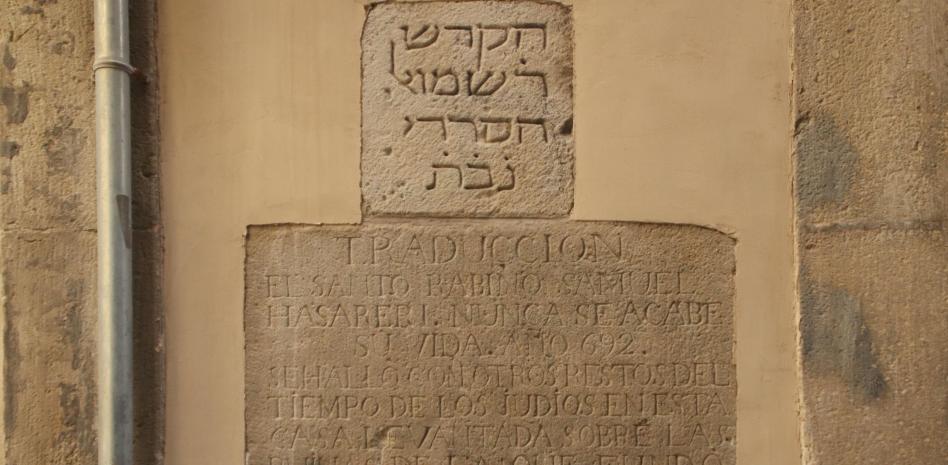 הקדש
ר שמואל
הסרדי
נ̇ב̇ת̇
TRADUCCION
EL SANTO RABINO SAMUEL
HASARERI. NUNCA SE ACABE
SU VIDA. AÑO 692.
SE HALLO CON OTROS RESTOS DEL
TIEMPO DE LOS JUDIOS EN ESTA
CASA LEVANTADA SOBRE LAS
RUINAS DE LA QUE FUNDO